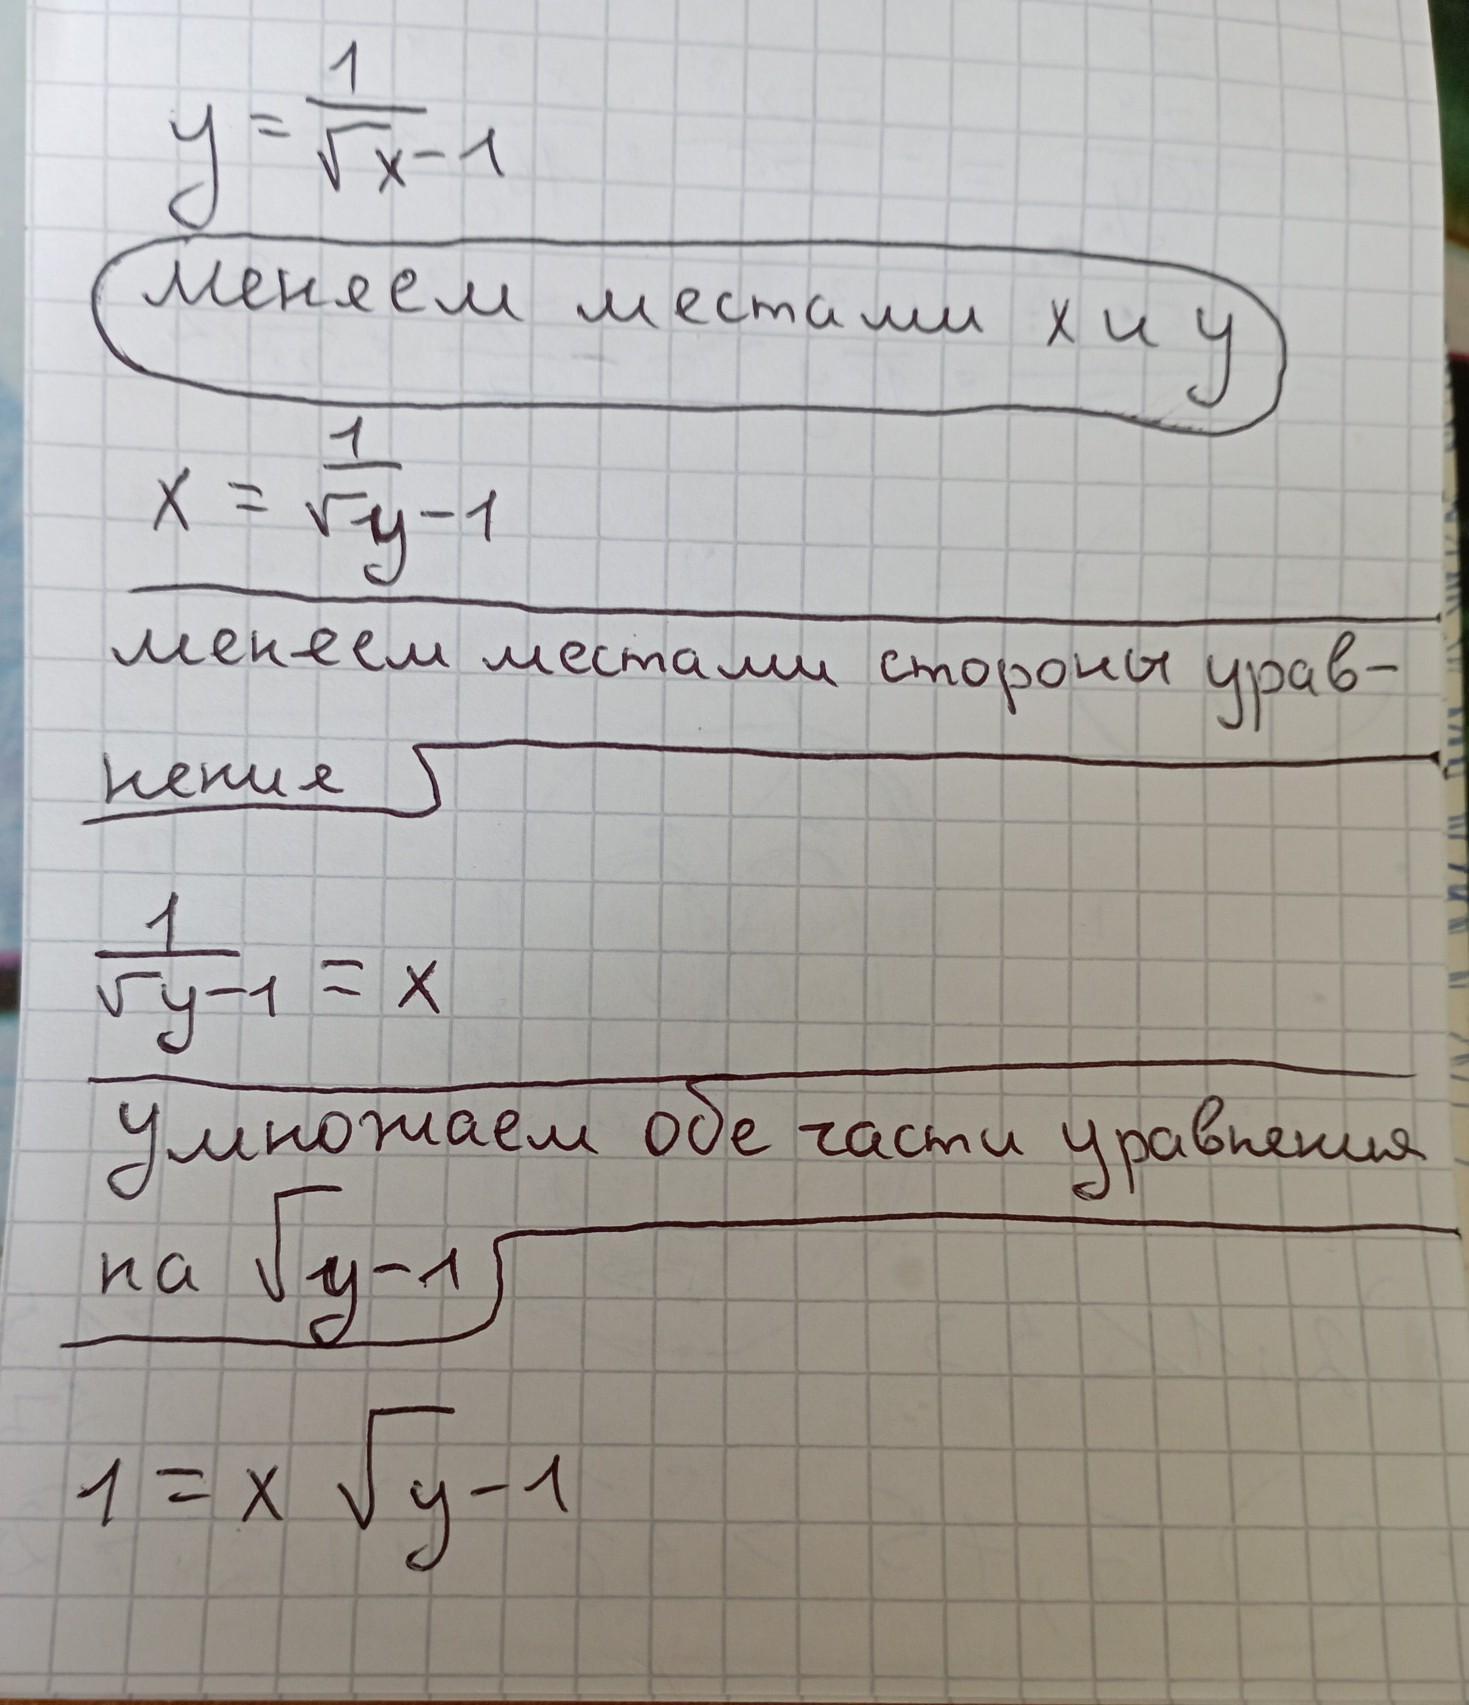 y = 1/√x - 1
меняем местами x и y
x = 1/√y - 1
меняем местами стороны урав-
нения
1/√y-1 = x
умножаем обе части уравнения
на √y-1
1 = x √y-1